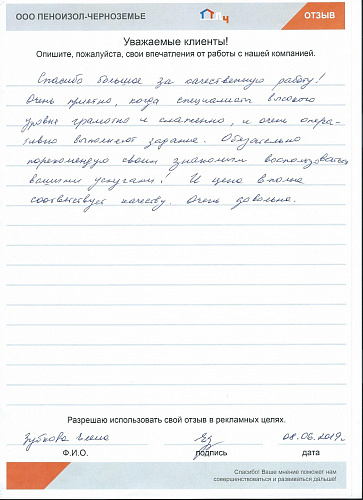 ООО ПЕНОИЗОЛ-ЧЕРНОЗЕМЬЕ
ОТЗЫВ
Уважаемые клиенты!
Опишите, пожалуйста, свои впечатления от работы с нашей компанией.
Спасибо большое за качественную работу!
Очень приятно, когда специалисты высокого
уровня грамотно и слаженно, и очень опера-
тивно выполняют задание. Обязательно
порекомендую своим знакомым воспользоваться
вашими услугами! И цена вполне
соответствует качеству. Очень довольна.
Разрешаю использовать свой отзыв в рекламных целях.
Зубкова Елена
08.06.2019г.
Ф.И.О.
подпись
дата
Спасибо! Ваше мнение поможет нам
совершенствоваться и развиваться дальше!